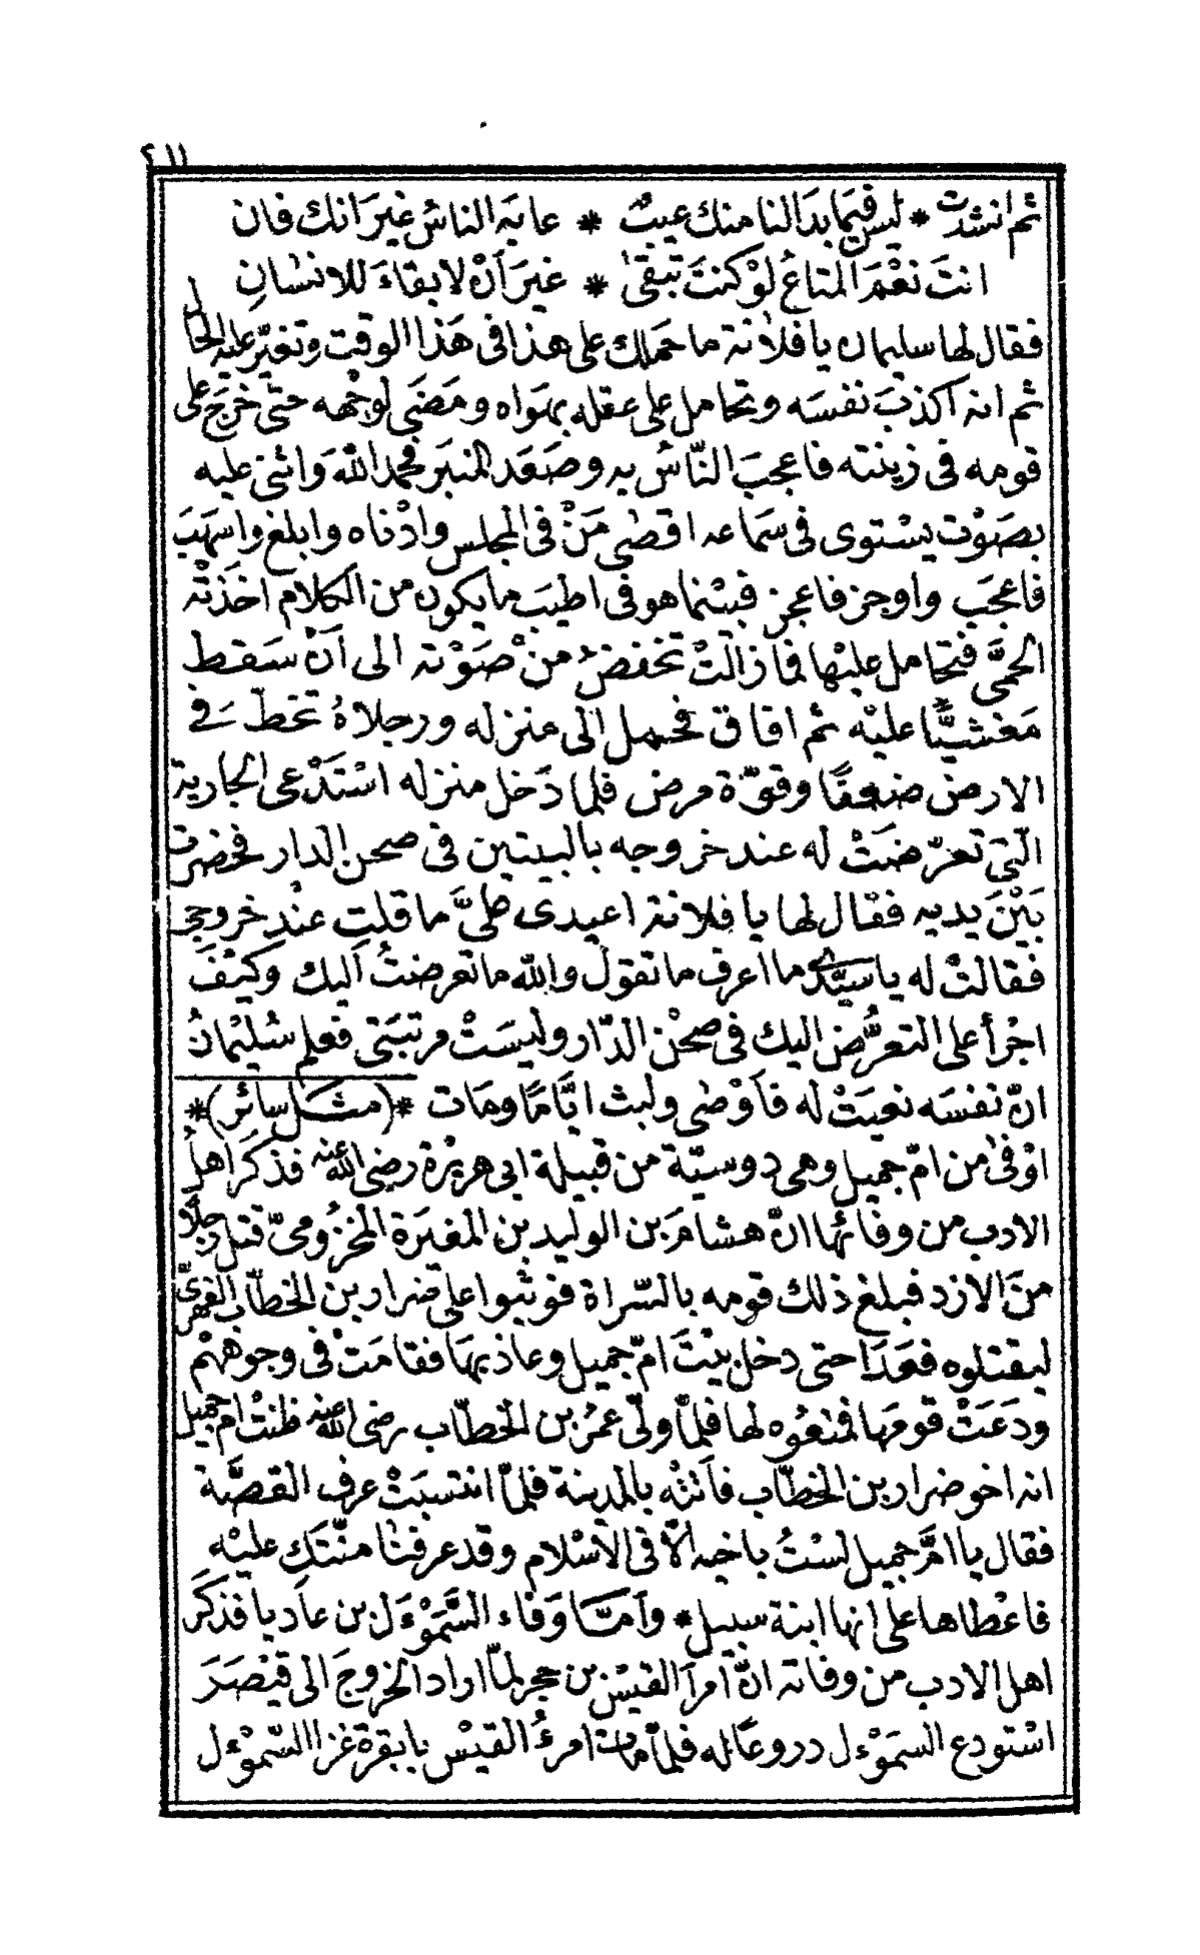 ٢١١
ثم انشدت * ليس فيما بدَا لنا منك عيبٌ * عابه الناسُ غيرَ انك فان
انتَ نعْمَ المتاعُ لوْ كنتَ تبْقى * غيرَ اَنْ لا بقاءَ للانسَانِ
فقال لها سليمان يا فلانة ما حملك على هذا فى هَذا الوقت وتغيّر عليه الحال
ثم انه اكذبَ نفسَه وتحامل على عقله بهوَاه ومَضَى لوجْهه حتى خرَج على
قومه فى زينته فاعجبَ النّاسُ به وصَعَد المنبَر فحمد اللهَ وَاثنى عليه
بصَوْت يسْتوى فى سَماعه اقصٰى مَنْ فى المجلس وادْناه وابلغ واسهَبَ
فاعجبَ واوجز فاعجز فبيْنما هو فى اطيَب ما يكون من الكلام اخذَتْه
الحمَّى فتحامل عليْها فما زالتْ تخفضُ منْ صَوْته الى اَنْ سَقط
مَغشيًّا عليْه ثم افاق فحمل الى منزله ورجلاهُ تخطّ فے
الارض ضعفًا وقوّة مرض فلما دَخل منزله اسْتَدْعى الجارية
التى تعرّضَتْ له عند خروجه بالبيتين فى صحن الدار فحضرت
بَيْنَ يديه فقال لها يا فلانة اعيدى علىَّ ما قلتِ عنْد خروجى
فقالتْ له يا سيّدى ما اعرف ما تقولُ والله ما تعرضتُ اليك وكيْفَ
اجْرأ على التعرُّض اليك فى صحْن الدّار وليسَتْ مرتبَتى فعلم سُليْمانُ
انّ نفسَه نعيَتْ له فاَوْصٰى ولبث ايّامًا ومَات *(مثَل سائر)*
اوْفى من امّ جميل وهى دوسيّة من قبيلة ابى هريْرة رضى الله عنه فذكَر اهلُ
الادب من وفائها انّ هشامَ بن الوليد بن المغيَرة المخزُومىّ قتل رجلًا
منَ الازد فبلغ ذلك قومه بالسّراة فوثبوا على ضرار بن الخطّاب الفهرىّ
ليقتلوه فعَدَا حتى دخل بيْتَ امّ جميل وعاذ بهَا فقامَتْ فى وجوههمْ
ودَعَتْ قومَها فمنعُوه لها فلمّا ولّى عمرُ بن الخطّاب رضى الله عنه ظنتْ ام جميل
انه اخو ضرار بن الخطّاب فاَتتْه بالمدينة فلمّا انتسبَتْ عرف القصَّة
فقال يا امَّ جميل لسْتُ باخيه الّا فى الاسْلام وقد عرفنا منّتك عليْه
فاعْطاها على انها ابنة سبيل * وامّا وَفاء السَّمَوْءَل بن عاَديا فذكَر
اهل الادب من وفائه انّ امرأ القيْس بن حجر لمّا اراد الخروجَ الى قيْصَرَ
اسْتودع السمَوْءل دروعًا له فلمّا مات امرءُ القيْس بانقرة غزا السّموْءل